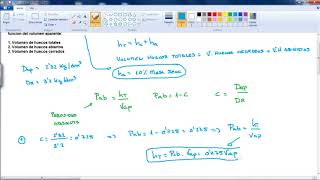 función del volumen aparente:
1. Volumen de huecos totales
2. Volumen de huecos abiertos
3. Volumen de huecos cerrados
hT = ha + hc
VOLUMEN HUECOS TOTALES = V. HUECOS CERRADOS + V.H ABIERTOS
ha = 10% MASA SECA
Dap = 2'32 Kg/dm³
DR = 3'2 Kg/dm³
Pab = hT / Vap
Pab = 1 - C
C = Dap / DR
POROSIDAD
ABSOLUTA
C = 2'32 / 3'2 = 0'725 => Pab = 1 - 0'725 = 0'275 => Pab = hT / Vap
hT = Pab · Vap = 0'275 Vap